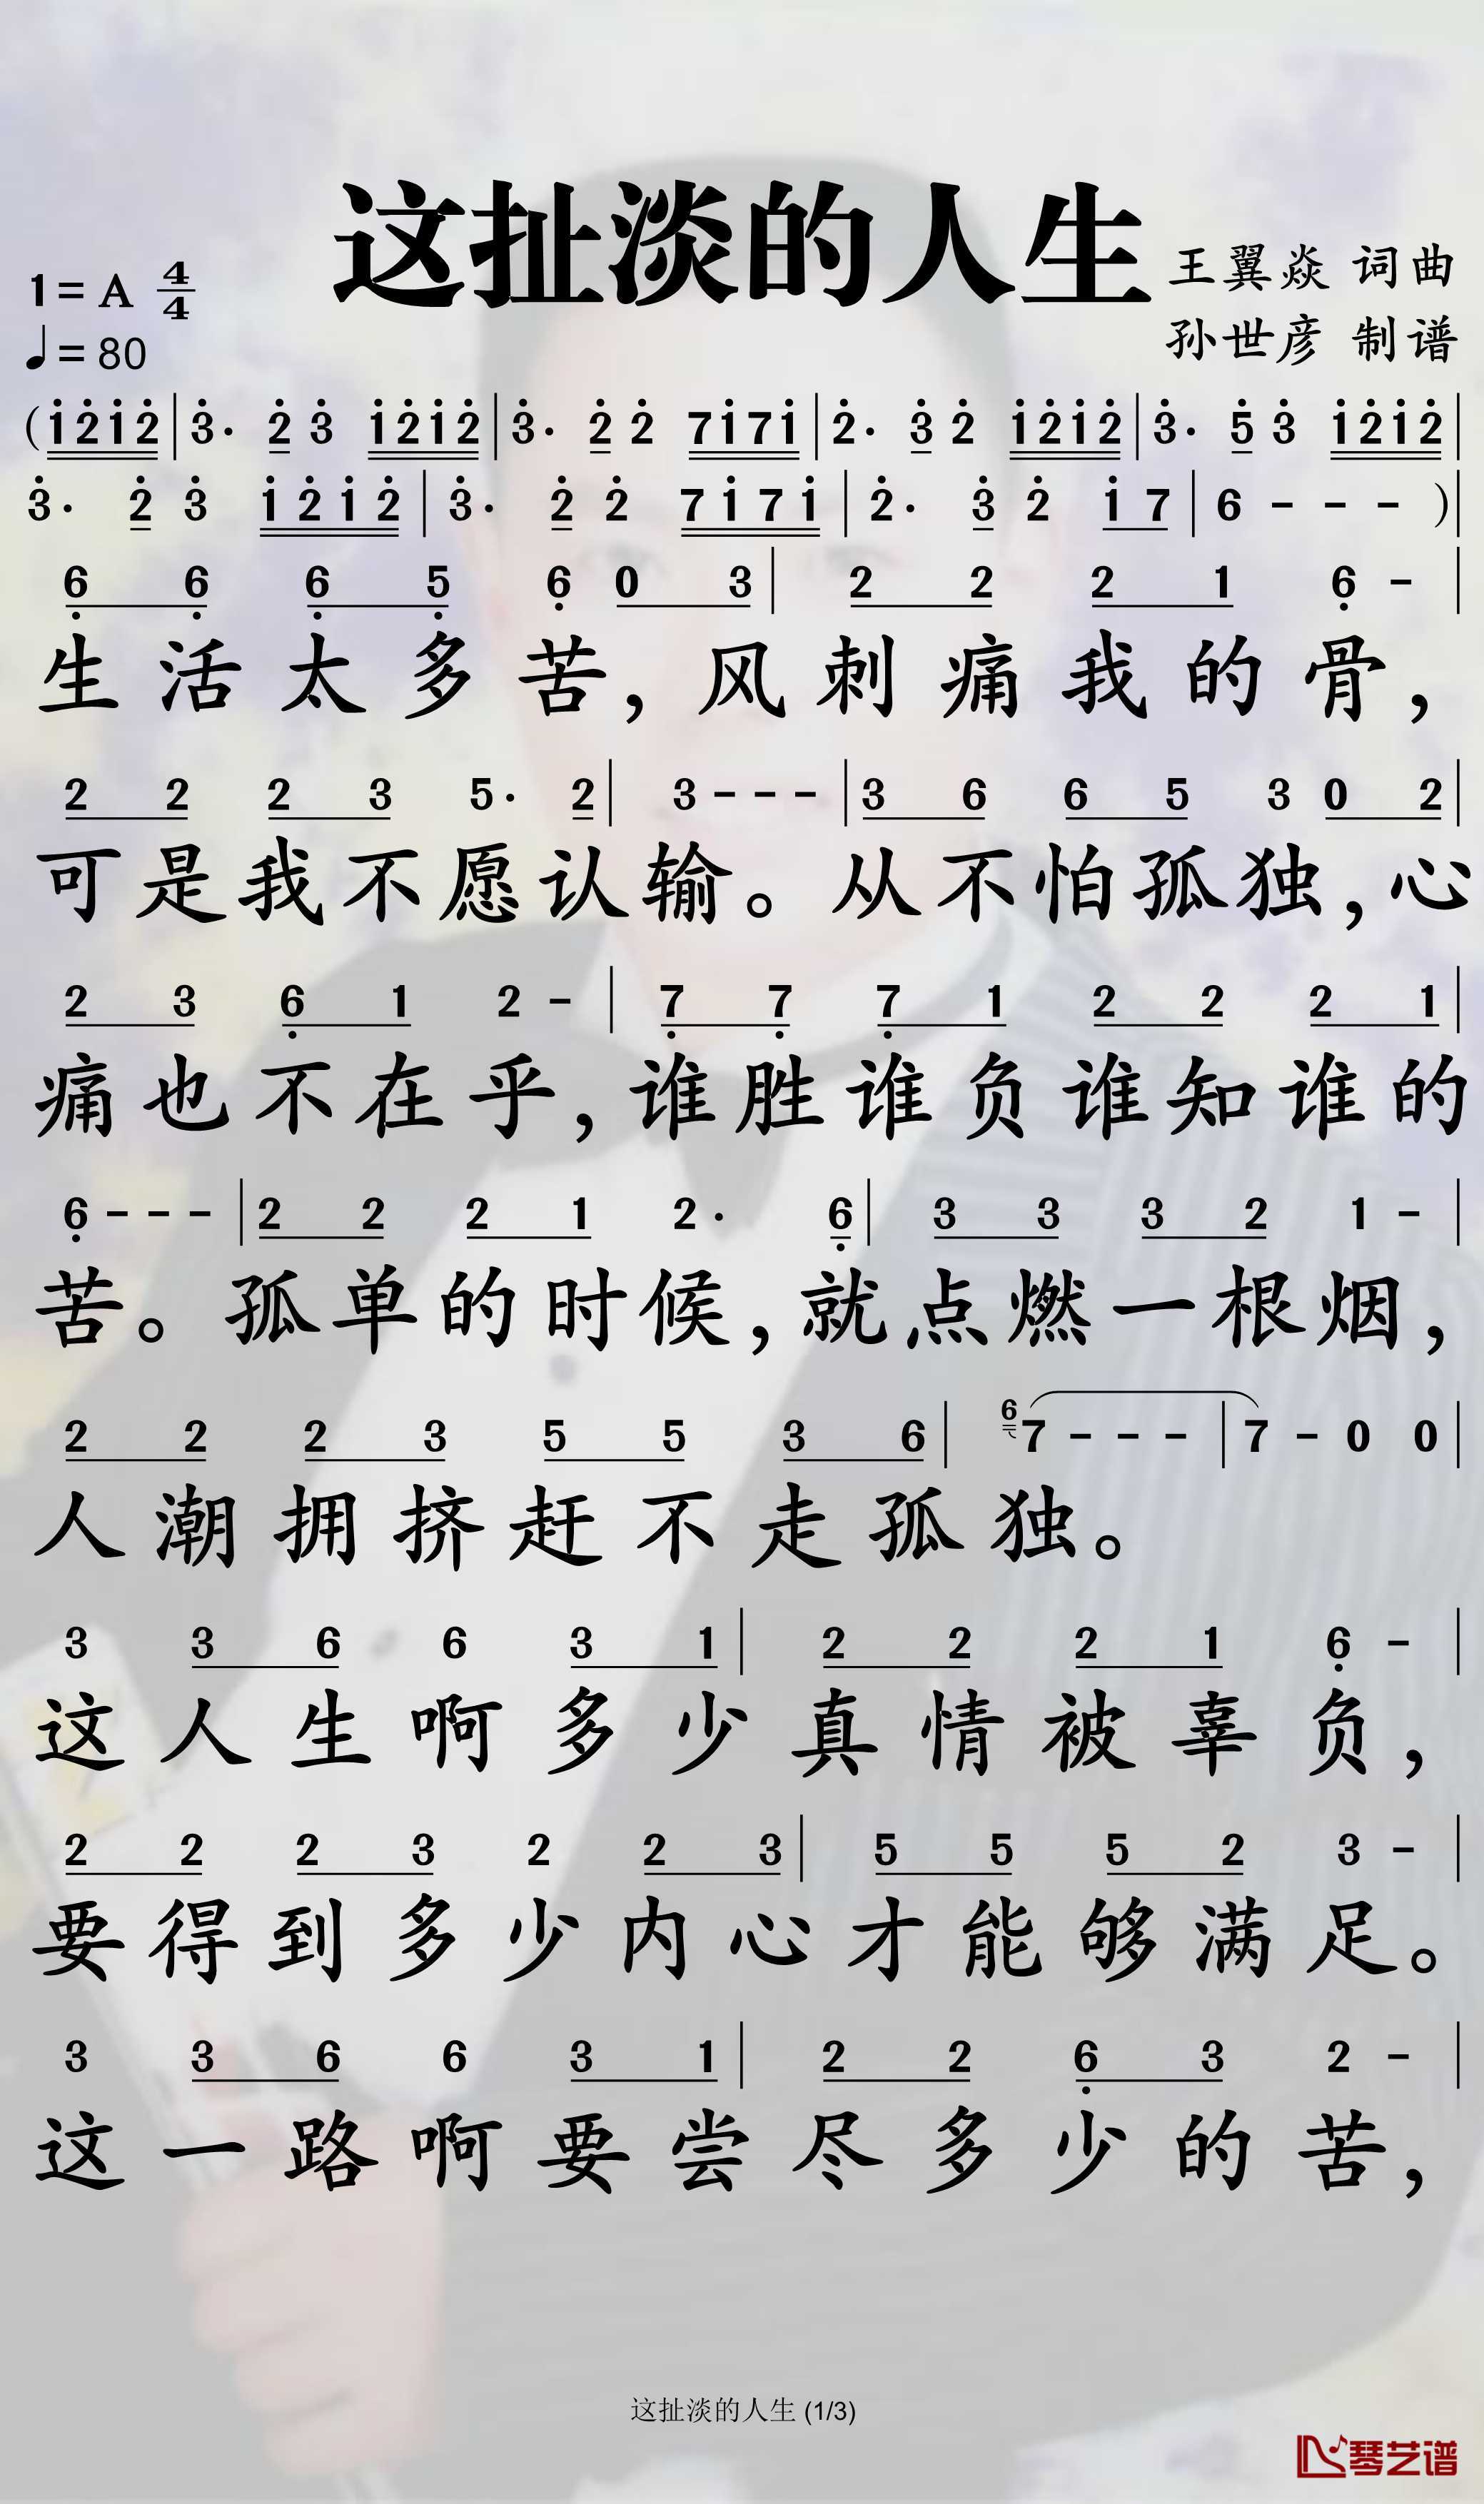 这扯淡的人生
王翼焱 词曲
1=A 4/4
孙世彦 制谱
♩=80
(1̇2̇1̇2̇|3̇· 2̇ 3̇ 1̇2̇1̇2̇|3̇· 2̇ 2̇ 71̇71̇|2̇· 3̇ 2̇ 1̇2̇1̇2̇|3̇· 5̇ 3̇ 1̇2̇1̇2̇|
3̇· 2̇ 3̇ 1̇2̇1̇2̇|3̇· 2̇ 2̇ 71̇71̇|2̇· 3̇ 2̇ 1̇7|6 - - -)|
6̣ 6̣ 6̣ 5̣ 6̣ 0 3|2 2 2 1 6̣ -|
生活太多苦，风刺痛我的骨，
2 2 2 3 5· 2|3 - - -|3 6 6 5 3 0 2|
可是我不愿认输。从不怕孤独，心
2 3 6̣ 1 2 -|7̣ 7̣ 7̣ 1 2 2 2 1|
痛也不在乎，谁胜谁负谁知谁的
6̣ - - -|2 2 2 1 2· 6̣|3 3 3 2 1 -|
苦。孤单的时候，就点燃一根烟，
2 2 2 3 5 5 3 6|6 7 - - -|7 - 0 0|
人潮拥挤赶不走孤独。
3 3 6 6 3 1|2 2 2 1 6̣ -|
这人生啊多少真情被辜负，
2 2 2 3 2 2 3|5 5 5 2 3 -|
要得到多少内心才能够满足。
3 3 6 6 3 1|2 2 6̣ 3 2 -|
这一路啊要尝尽多少的苦，
这扯淡的人生 (1/3)
琴艺谱